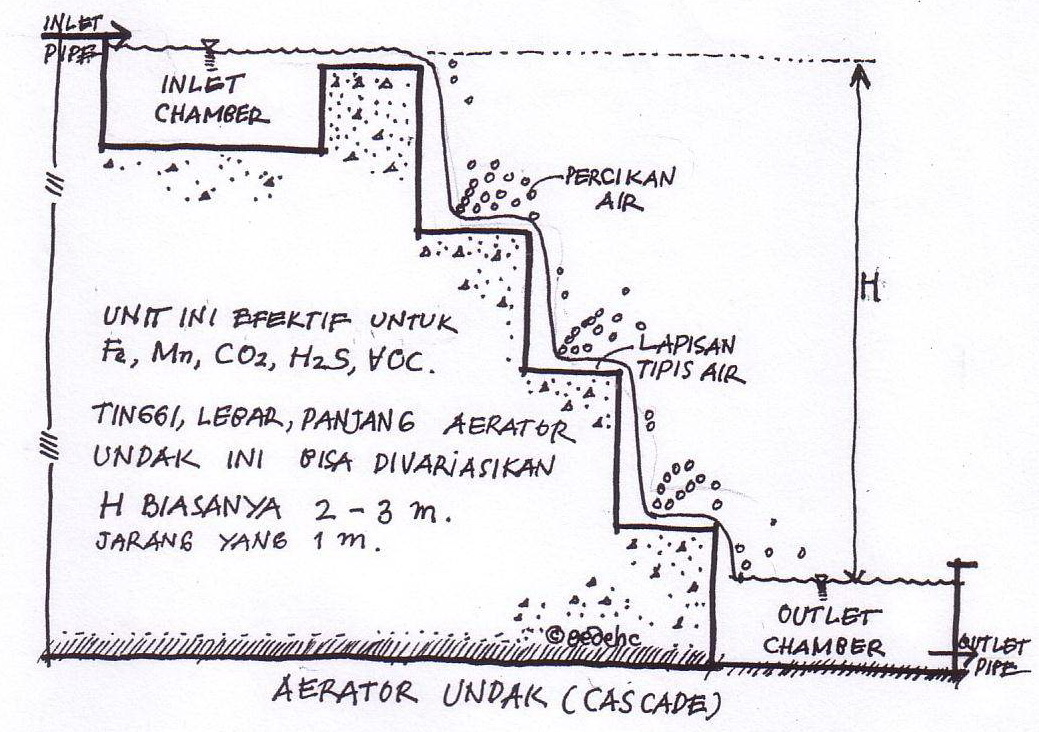 INLET
PIPE
INLET
CHAMBER
PERCIKAN
AIR
H
LAPISAN
TIPIS AIR
UNIT INI EFEKTIF UNTUK
Fe, Mn, CO2, H2S, VOC.
TINGGI, LEBAR, PANJANG AERATOR
UNDAK INI BISA DIVARIASIKAN
H BIASANYA 2 - 3 m.
JARANG YANG 1 m.
OUTLET
CHAMBER
OUTLET
PIPE
©gedehc
AERATOR UNDAK (CASCADE)